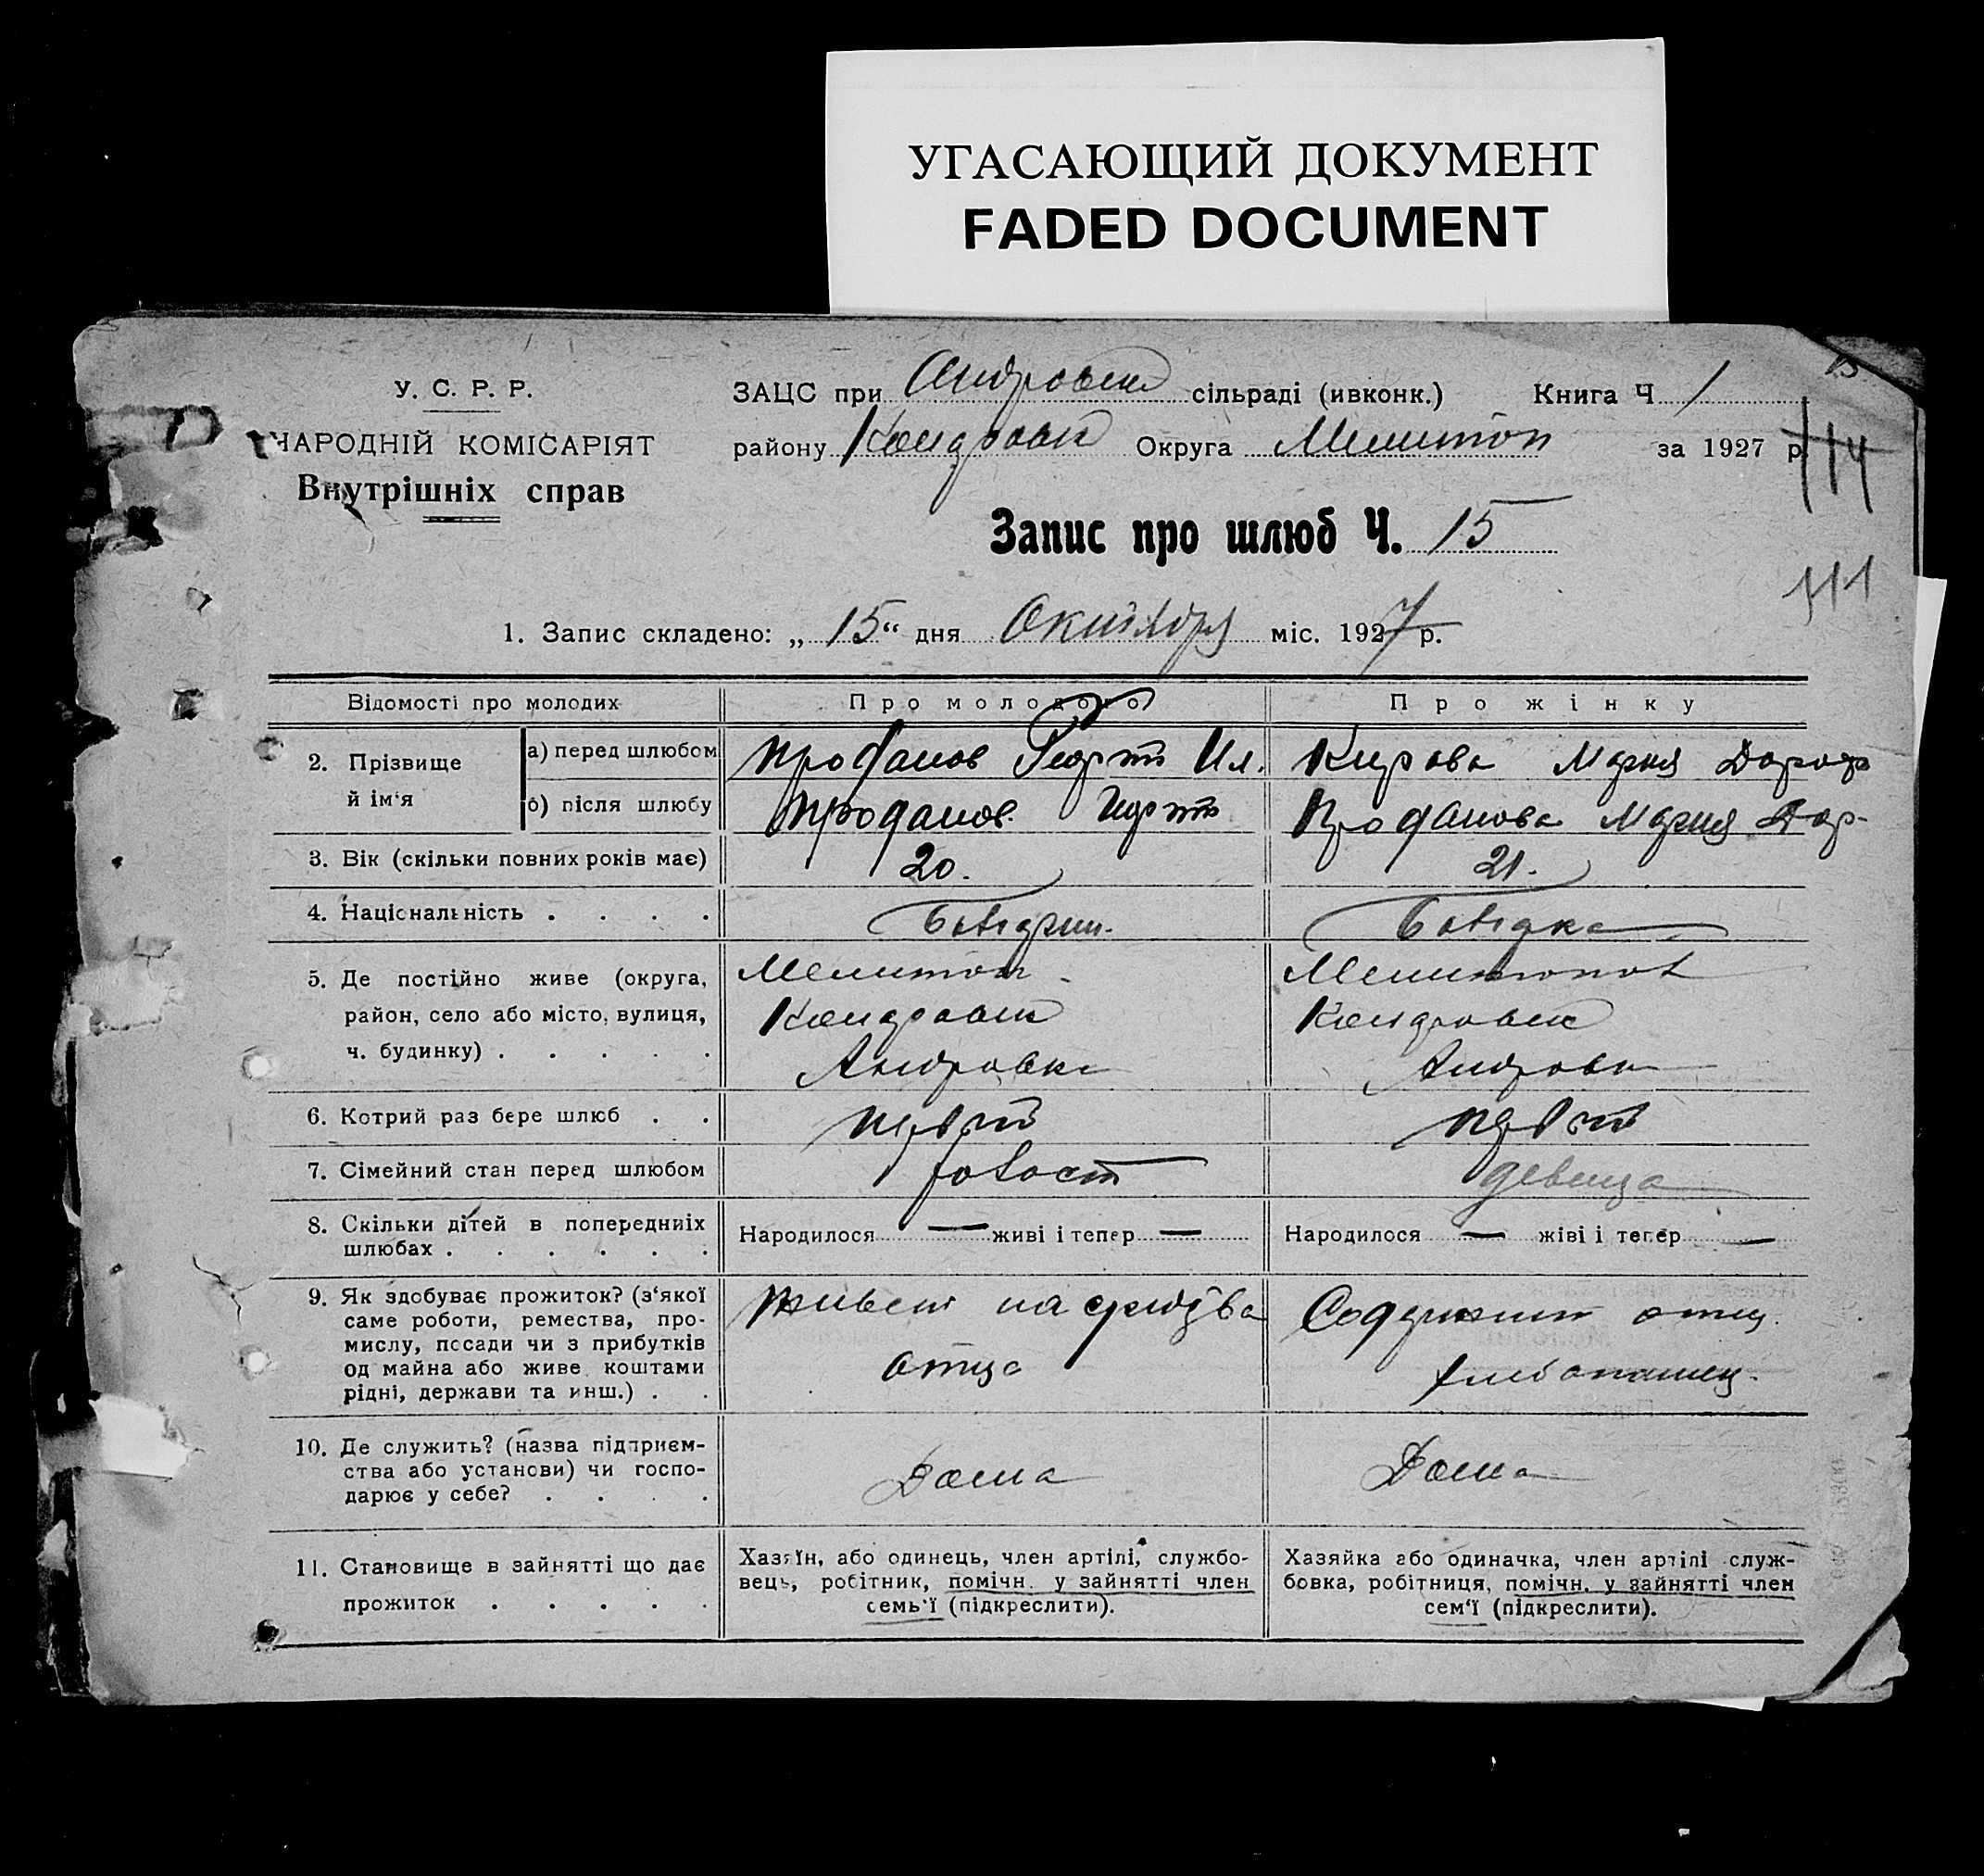 УГАСАЮЩИЙ ДОКУМЕНТ
FADED DOCUMENT
15
У. С. Р. Р.
НАРОДНІЙ КОМІСАРІЯТ
Внутрішніх справ
ЗАЦС при Андровск сільраді (ивконк.) Книга Ч 1
району Округа Мелитоп за 1927 р.
114
Запис про шлюб Ч. 15
111
1. Запис складено: „ 15 “ дня Октября міс. 1927 р.
Відомості про молодих Про молодого Про жінку
2. Прізвище й ім'я
а) перед шлюбом Проданов Георги Ил. Кирова Мария Дороф
б) після шлюбу Проданов Георги Проданова Мария Дор-
3. Вік (скільки повних років має) 20. 21.
4. Національність . . . .
5. Де постійно живе (округа, Мелитоп Мелитопол
район, село або місто, вулиця,
ч. будинку) . . . . . Андровка Андровк
6. Котрий раз бере шлюб . .
7. Сімейний стан перед шлюбом холост девица
8. Скільки дітей в попередниіх
шлюбах . . . . . . Народилося — живі і тепер — Народилося — жіві і тепер —
9. Як здобуває прожиток? (з'якої Живет на средства отца
саме роботи, ремества, про-
мислу, посади чи з прибутків
од майна або живе коштами
рідні, держави та инш.) . .
10. Де служить? (назва підприєм-
ства або установи) чи госпо- Дома Дома
дарює у себе? . . . .
11. Становище в зайнятті що дає
прожиток . . . . .
Хазяїн, або одинець, член артілі, службо-
вець, робітник, помічн. у зайнятті член
семь'ї (підкреслити).
Хазяйка або одиначка, член артілі служ-
бовка, робітниця, помічн. у зайнятті член
сем'ї (підкреслити).